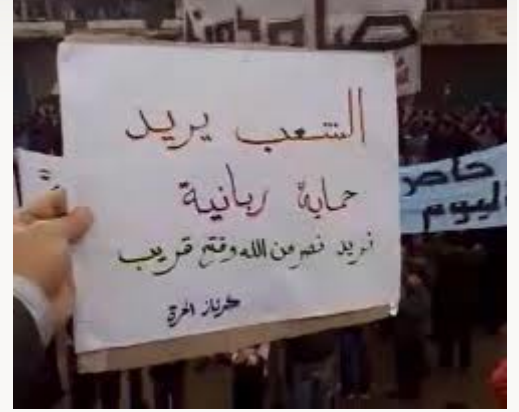 صامدون
الشعب يريد
حماية ربانية
نريد نصر من الله وفتح قريب
كرناز الحرة
حاص
اليوم